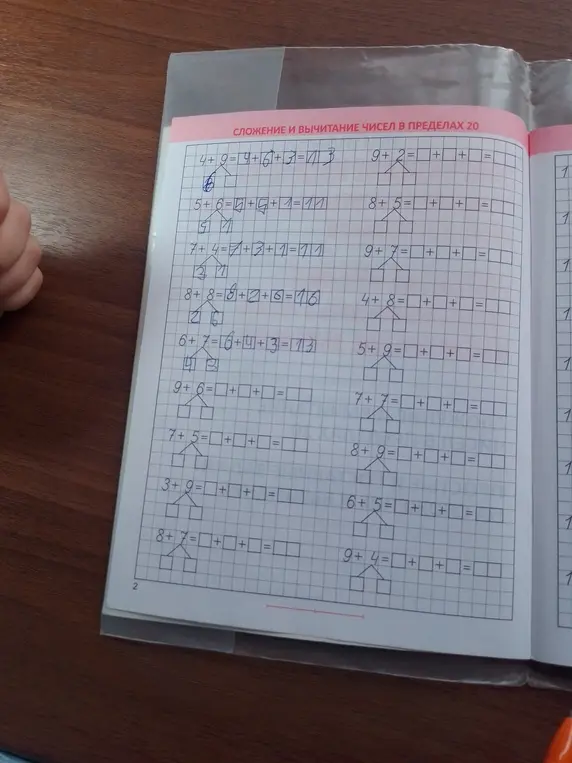 СЛОЖЕНИЕ И ВЫЧИТАНИЕ ЧИСЕЛ В ПРЕДЕЛАХ 20
4+9=4+6+3=13
6
5+6=5+5+1=11
5 1
7+4=7+3+1=11
3 1
8+8=8+2+6=16
2 6
6+7=6+4+3=13
4 3
9+6=□+□+□=□□
7+5=□+□+□=□□
3+9=□+□+□=□□
8+7=□+□+□=□□
9+2=□+□+□=□□
8+5=□+□+□=□□
9+7=□+□+□=□□
4+8=□+□+□=□□
5+9=□+□+□=□□
7+7=□+□+□=□□
8+9=□+□+□=□□
6+5=□+□+□=□□
9+4=□+□+□=□□
2